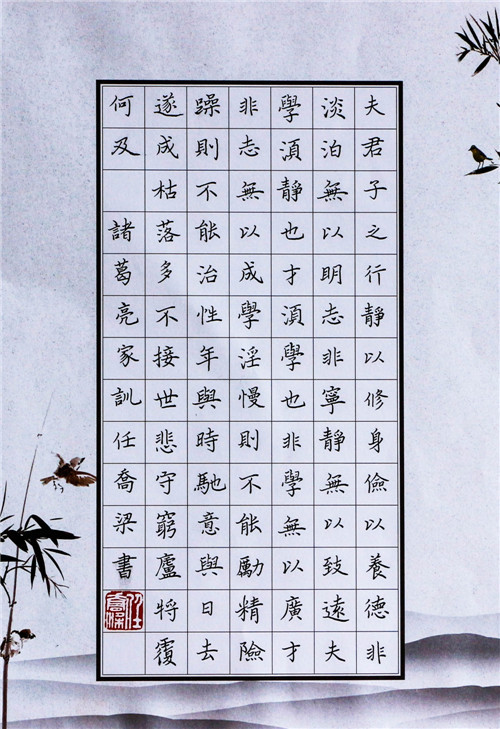 夫君子之行靜以修身儉以養德非
淡泊無以明志非寧靜無以致遠夫
學湏靜也才湏學也非學無以廣才
非志無以成學淫慢則不能勵精險
躁則不能治性年與時馳意與日去
遂成枯落多不接世悲守窮廬將覆
何及 諸葛亮家訓任喬梁書